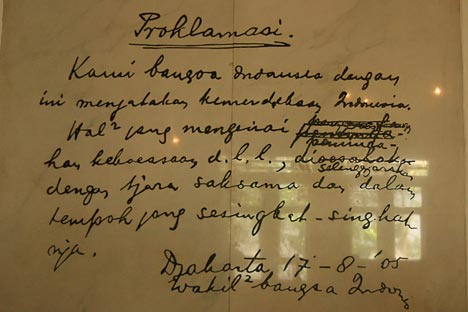 Proklamasi.
Kami bangsa Indonesia dengan
ini menjatakan kemerdekaan Indonesia.
Hal² jang mengenai peminda-
han kekoeasaan d.l.l., diselenggarakan
dengan tjara saksama dan dalam
tempoh jang sesingkat-singkat
nja.
Djakarta 17-8-'05
Wakil² bangsa Indones